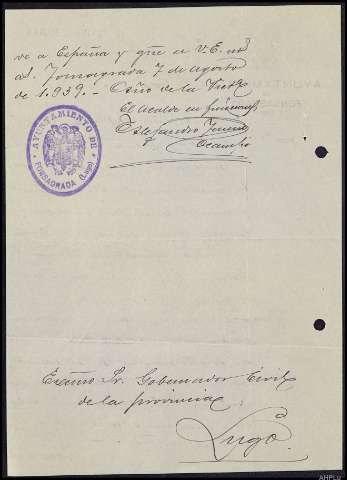 ve a España y que a V.E.
Fonsagrada 7 de agosto
de 1.939.- Año de la Victª
El Alcalde en funciones
Alejandro
Ocampo
AYUNTAMIENTO DE
FONSAGRADA (Lugo)
Excmo Sr. Gobernador Civil
de la provincia
Lugo.
AHPLu